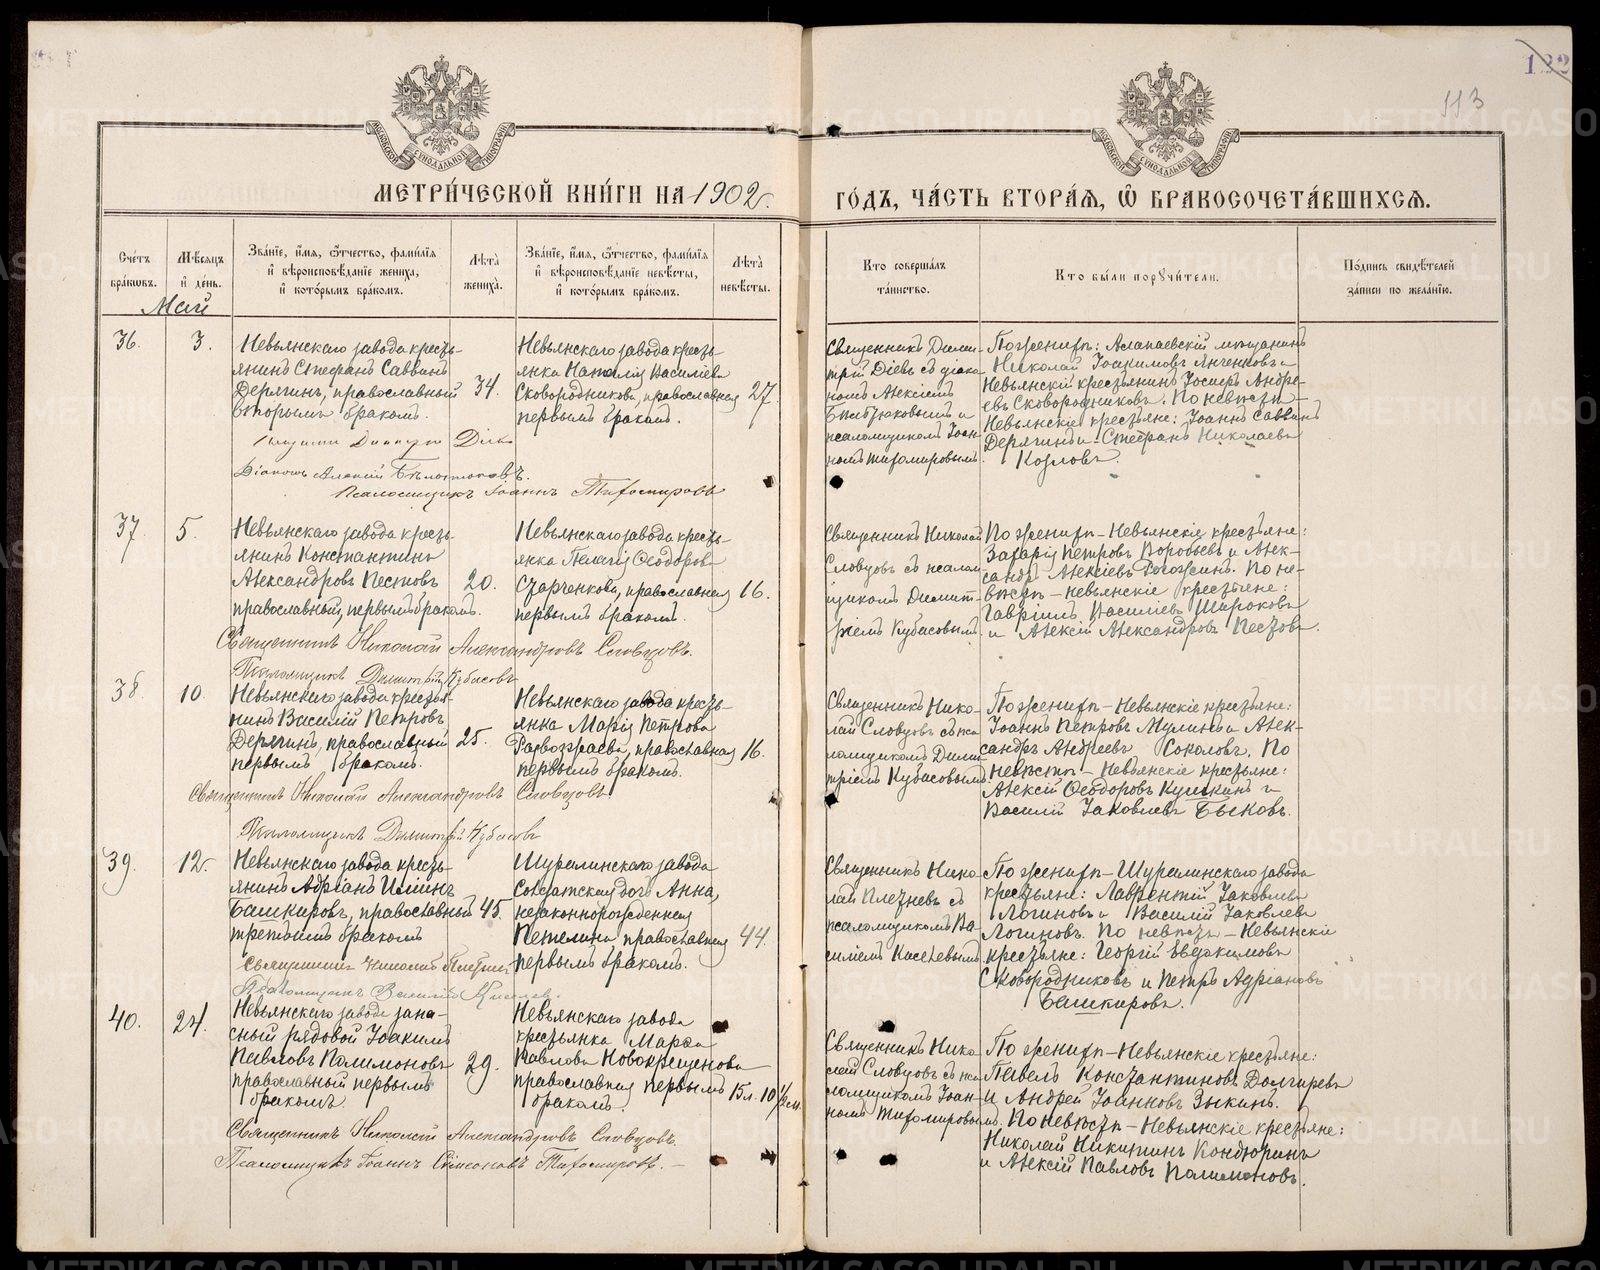 122
113
МОСКОВСКОЙ СУНОДАЛЬНОЙ ТИПОГРАФІИ
МОСКОВСКОЙ СУНОДАЛЬНОЙ ТИПОГРАФІИ
МЕТРИ́ЧЕСКОЙ КНИ́ГИ НА 1902 г.
ГО́ДЪ, ЧА́СТЬ ВТОРА́Я, Ѿ БРАКОСОЧЕТА́ВШИХСЯ.
Сче́тъ бра́ковъ.
Мѣ́сяцъ и де́нь.
Зва́нїе, и́мя, о́тчество, фами́лїя
и вѣроисповѣ́данїе жениха̀,
и кото́рымъ бра́комъ.
Лѣта̀ жениха̀.
Зва́нїе, и́мя, о́тчество, фами́лїя
и вѣроисповѣ́данїе невѣ́сты,
и кото́рымъ бра́комъ.
Лѣта̀ невѣ́сты.
Кто соверша́лъ
та́инство.
Кто бы́ли поручи́тели.
По́дпись свидѣ́телей
за́писи по жела́нїю.
Май
36.
3.
Невьянскаго завода кресть-
янинъ Стефанъ Саввинъ
Дерягинъ, православный
вторымъ бракомъ.
34.
Невьянскаго завода кресть-
янка Наталія Василіева
Сковородникова, православная
первымъ бракомъ.
27.
Священникъ Дими-
трій Діевъ съ діако-
номъ Алексіемъ
и
псаломщикомъ Іоан-
номъ Тихомировымъ.
По женихѣ: Алапаевскій мѣщанинъ
Николай Іоакимовъ Янченковъ и
Невьянскій крестьянинъ Іосифъ Андре-
евъ Сковородниковъ. По невѣстѣ –
Невьянскіе крестьяне: Іоаннъ Саввинъ
Дерягинъ и Стефанъ Николаевъ
Козловъ.
Димитрій Діевъ
Діаконъ Алексій
Псаломщикъ Іоаннъ Тихомировъ
37.
5.
Невьянскаго завода кресть-
янинъ Константинъ
Александровъ Пестовъ
православный, первымъ бракомъ.
20.
Невьянскаго завода кресть-
янка Пелагія Ѳеодорова
Старченкова, православная
первымъ бракомъ.
16.
Священникъ Николай
Словцовъ съ псалом-
щикомъ Димит-
ріемъ Кубасовымъ.
По женихѣ – Невьянскіе крестьяне:
Захарій Петровъ Воробьевъ и Алек-
сандръ Алексіевъ Рогожинъ. По не-
вѣстѣ – невьянскіе крестьяне:
Гавріилъ Василіевъ Широковъ
и Алексій Александровъ Пестовъ.
Священникъ Николай Александровъ Словцовъ.
Псаломщикъ Димитрій Кубасовъ
38.
10.
Невьянскаго завода крестья-
нинъ Василій Петровъ
Дерягинъ, православный
первымъ бракомъ.
25.
Невьянскаго завода кресть-
янка Марія Петрова
православная
первымъ бракомъ.
16.
Священникъ Нико-
лай Словцовъ съ пса-
ломщикомъ Дими-
тріемъ Кубасовымъ.
По женихѣ – Невьянскіе крестьяне:
Іоаннъ Петровъ Мулинъ и Алек-
сандръ Андреевъ Соколовъ. По
невѣстѣ – Невьянскіе крестьяне:
Алексій Ѳеодоровъ Кушкинъ и
Василій Іаковлевъ Быковъ.
Священникъ Николай Александровъ Словцовъ
Псаломщикъ Димитрій Кубасовъ
39.
12.
Невьянскаго завода кресть-
янинъ Адріанъ Иліинъ
Башкировъ, православный
третьимъ бракомъ
45.
Шуралинскаго завода
солдатская дочь Анна,
незаконнорожденная
Петелина православная
первымъ бракомъ.
44.
Священникъ Нико-
лай Плетневъ съ
псаломщикомъ Ва-
силіемъ Киселевымъ
По женихѣ – Шуралинскаго завода
крестьяне: Лаврентій Іаковлевъ
Логиновъ и Василій Іаковлевъ
Логиновъ. По невѣстѣ – Невьянскіе
крестьяне: Георгій Евдокимовъ
Сковородниковъ и Петръ Адріановъ
Башкировъ.
Священникъ Николай Плетневъ
Псаломщикъ Василій Киселевъ.
40.
24.
Невьянскаго завода запа-
сный рядовой Іоакимъ
Павловъ Палимоновъ
православный первымъ
бракомъ.
29.
Невьянскаго завода
крестьянка Марѳа
Павлова Новокрещенова
православная первымъ
бракомъ.
15 л. 10 1/2 м.
Священникъ Нико-
лай Словцовъ съ пса-
ломщикомъ Іоан-
номъ Тихомировымъ.
По женихѣ – Невьянскіе крестьяне:
Павелъ Константиновъ Долгиревъ
и Андрей Іоанновъ Зыкинъ.
По невѣстѣ – Невьянскіе крестьяне:
Николай Никитинъ Кондюринъ
и Алексій Павловъ Палимоновъ.
Священникъ Николай Александровъ Словцовъ.
Псаломщикъ Іоаннъ Симеоновъ Тихомировъ. –
METRIKI.GASO-URAL.RU